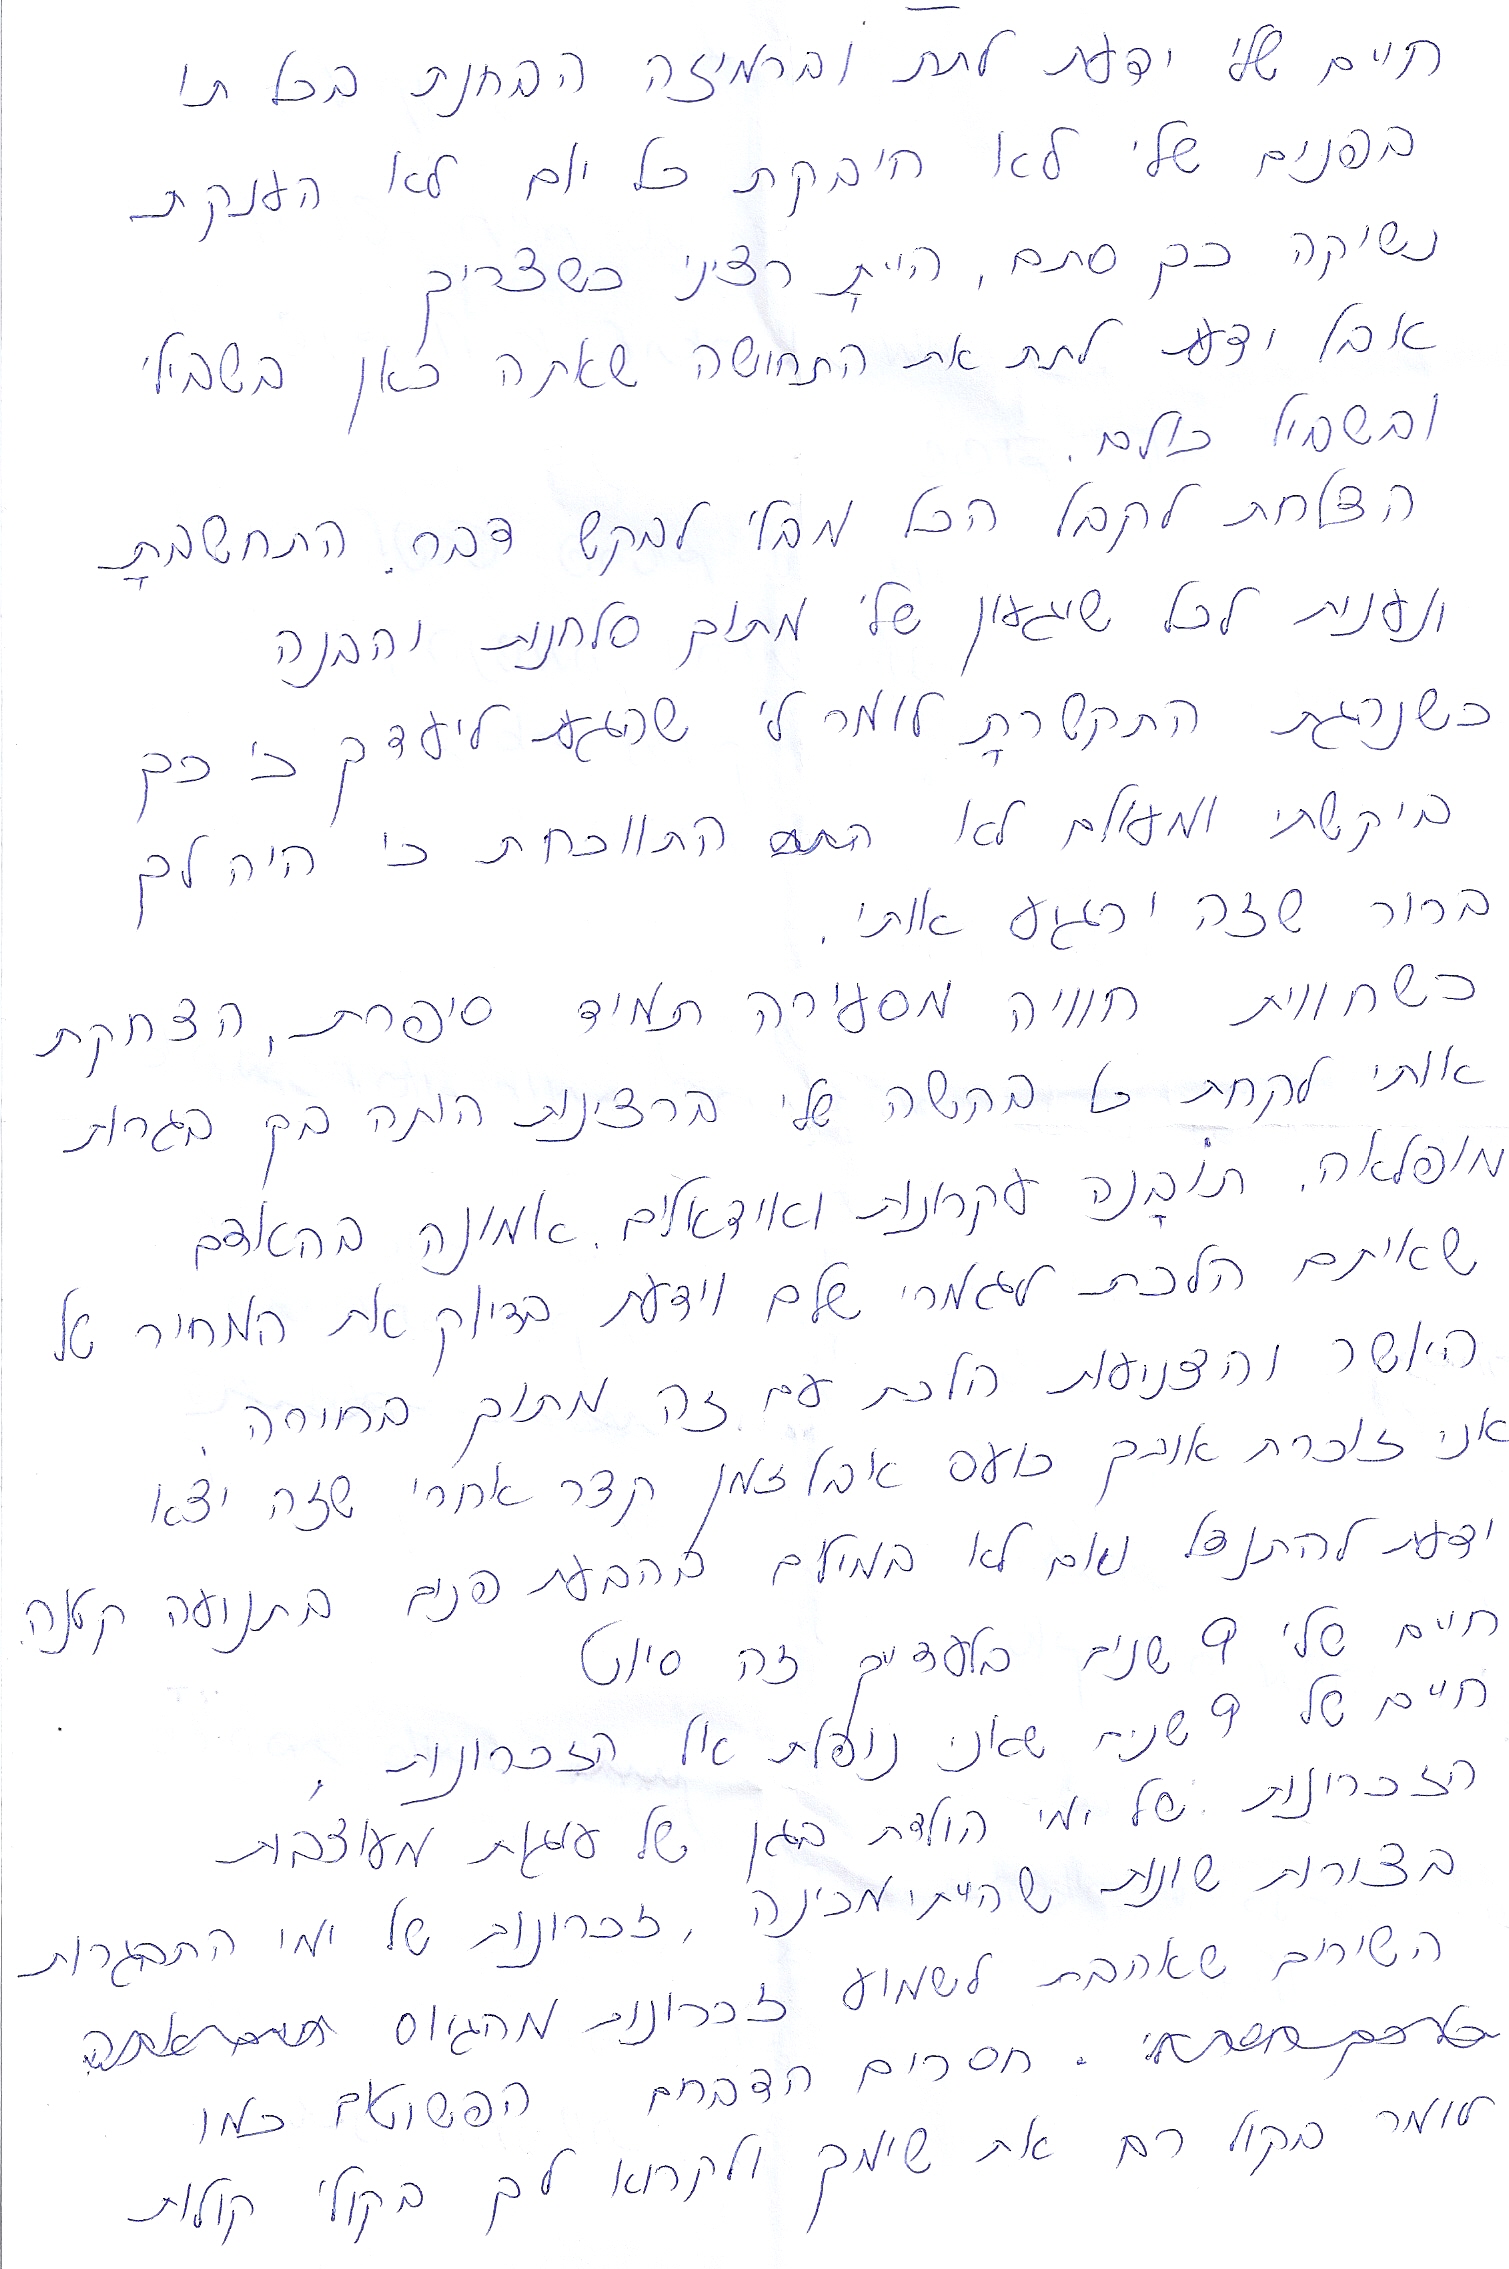 חיים שלי ידעת לתת וברמיזה הבחנת בכל תו
בפנים שלי לא חיבקת כל יום לא הענקת
נשיקה כך סתם, היית רציני כשצריך
אבל ידעת לתת את התחושה שאתה כאן בשבילי
ובשביל כולם.
הצלחת לקבל הכל מבלי לבקש דבר. התחשבתָ
ונענית לכל שיגעון שלי מתוך סלחנות והבנה
כשנהגת התקשרתָ לומר לי שהגעת ליעדך כי כך
ביקשתי ומעולם לא התווכחת כי היה לך
ברור שזה ירגיע אותי.
כשחווית חוויה מסעירה תמיד סיפרת, הצחקת
אותי לקחת כל בקשה שלי ברצינות הותה בך בגרות
מופלאה. תובָנה עקרונות ואידאלים. אמונה בהאדם
שאיתם הלכת לגמרי שלם וידעת בדיוק את המחיר של
היושר והצניעות הלכת עם זה מתוך בחירה.
אני זוכרת אותך כועס אבל זמן קצר אחרי שזה יצא
ידעת להתנצל ואם לא במילים בהבעת פנים בתנועה קטנה.
חיים שלי 9 שנים בלעדייך זה סיוט
חיים של 9 שנים שאני נופלת אל הזכרונות,
הזכרונות של ימי הולדת בגן של עוגות מעוצבות
בצורות שונות שהייתי מכינה, זכרונות של ימי התבגרות
השירים שאהבת לשמוע זכרונות מהגיוס
. חסרים הדברים הפשוטים כמו
לומר בקול רם את שימך ולקרוא לך בקולי קולות